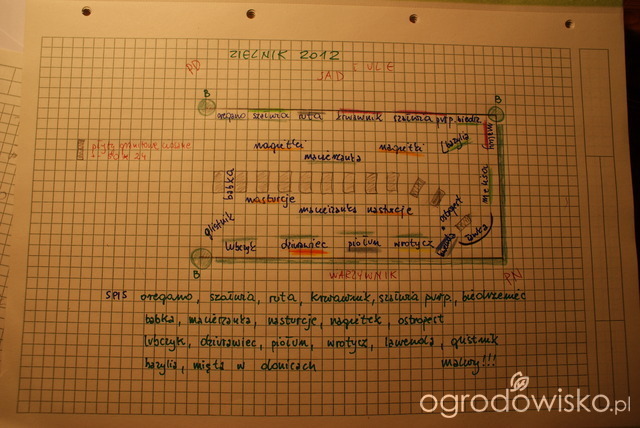 ZIELNIK 2012
PD
SAD I ULE
B
B
oregano szałwia ruta krwawnik szałwia purp. biedrz.
nagietki nagietki bazylia
macierzanka
płyty granitowe ciosane
babka
melisa
nasturcje macierzanka nasturcje
ostropest
glistnik
lubczyk dziurawiec piołun wrotycz
B
WARZYWNIK
PN
SPIS oregano, szałwia, ruta, krwawnik, szałwia purp., biedrzeniec
babka, macierzanka, nasturcje, nagietek, ostropest
lubczyk, dziurawiec, piołun, wrotycz, lawenda, glistnik
bazylia, mięta w donicach malwy!!!
ogrodowisko.pl